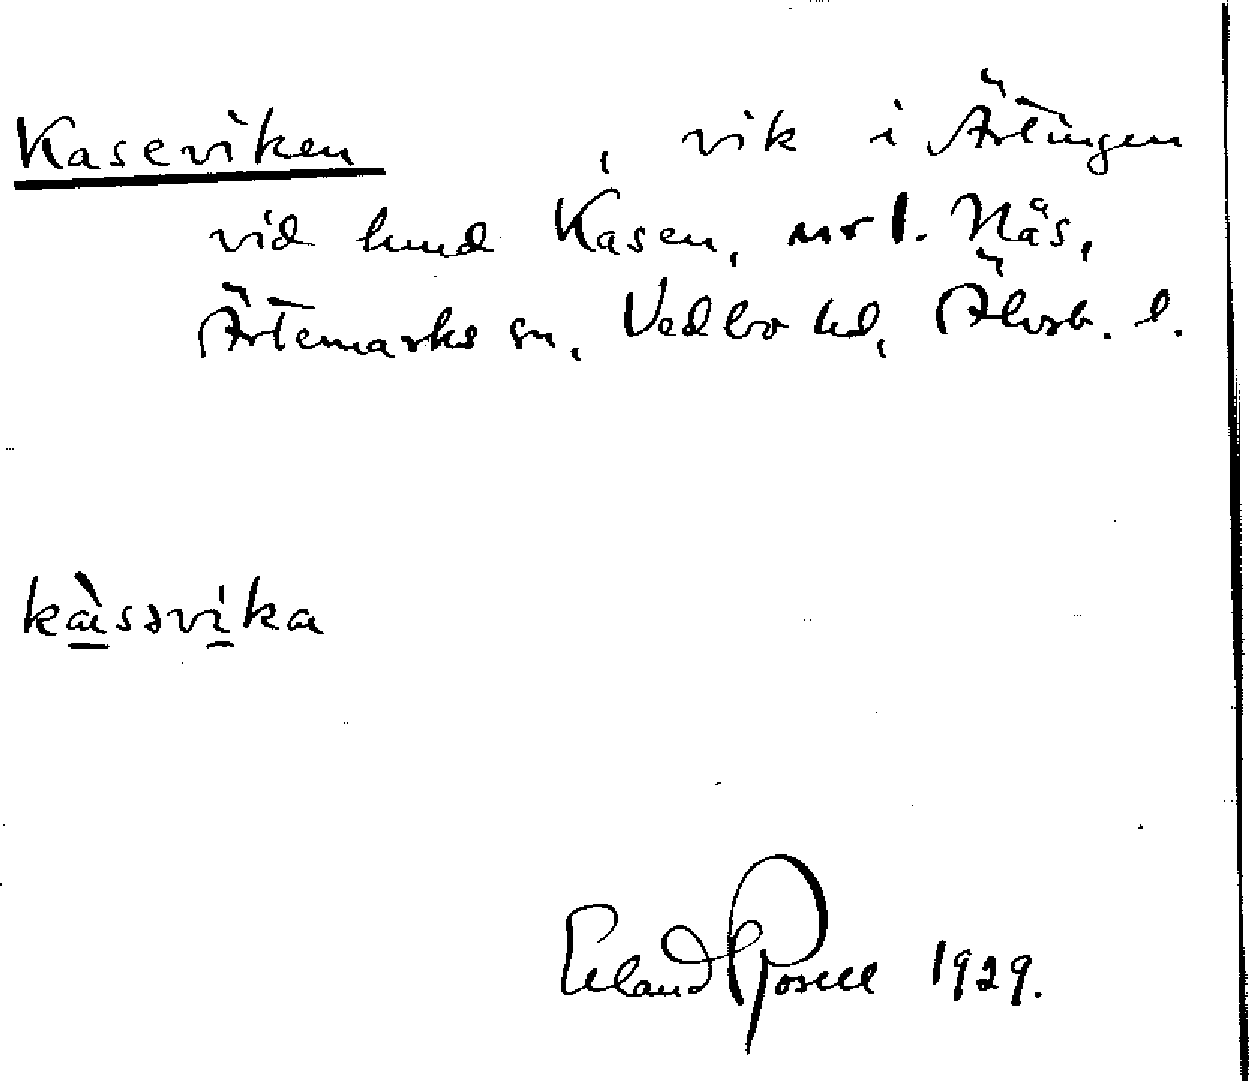 Kaseviken , vik i Ärtingen
vid hmd Kasen, nr 1. Näs,
Ärtemarks sn, Vedbo hd, Älvsb. l.
kàsəvika
Erland Rosell 1929.